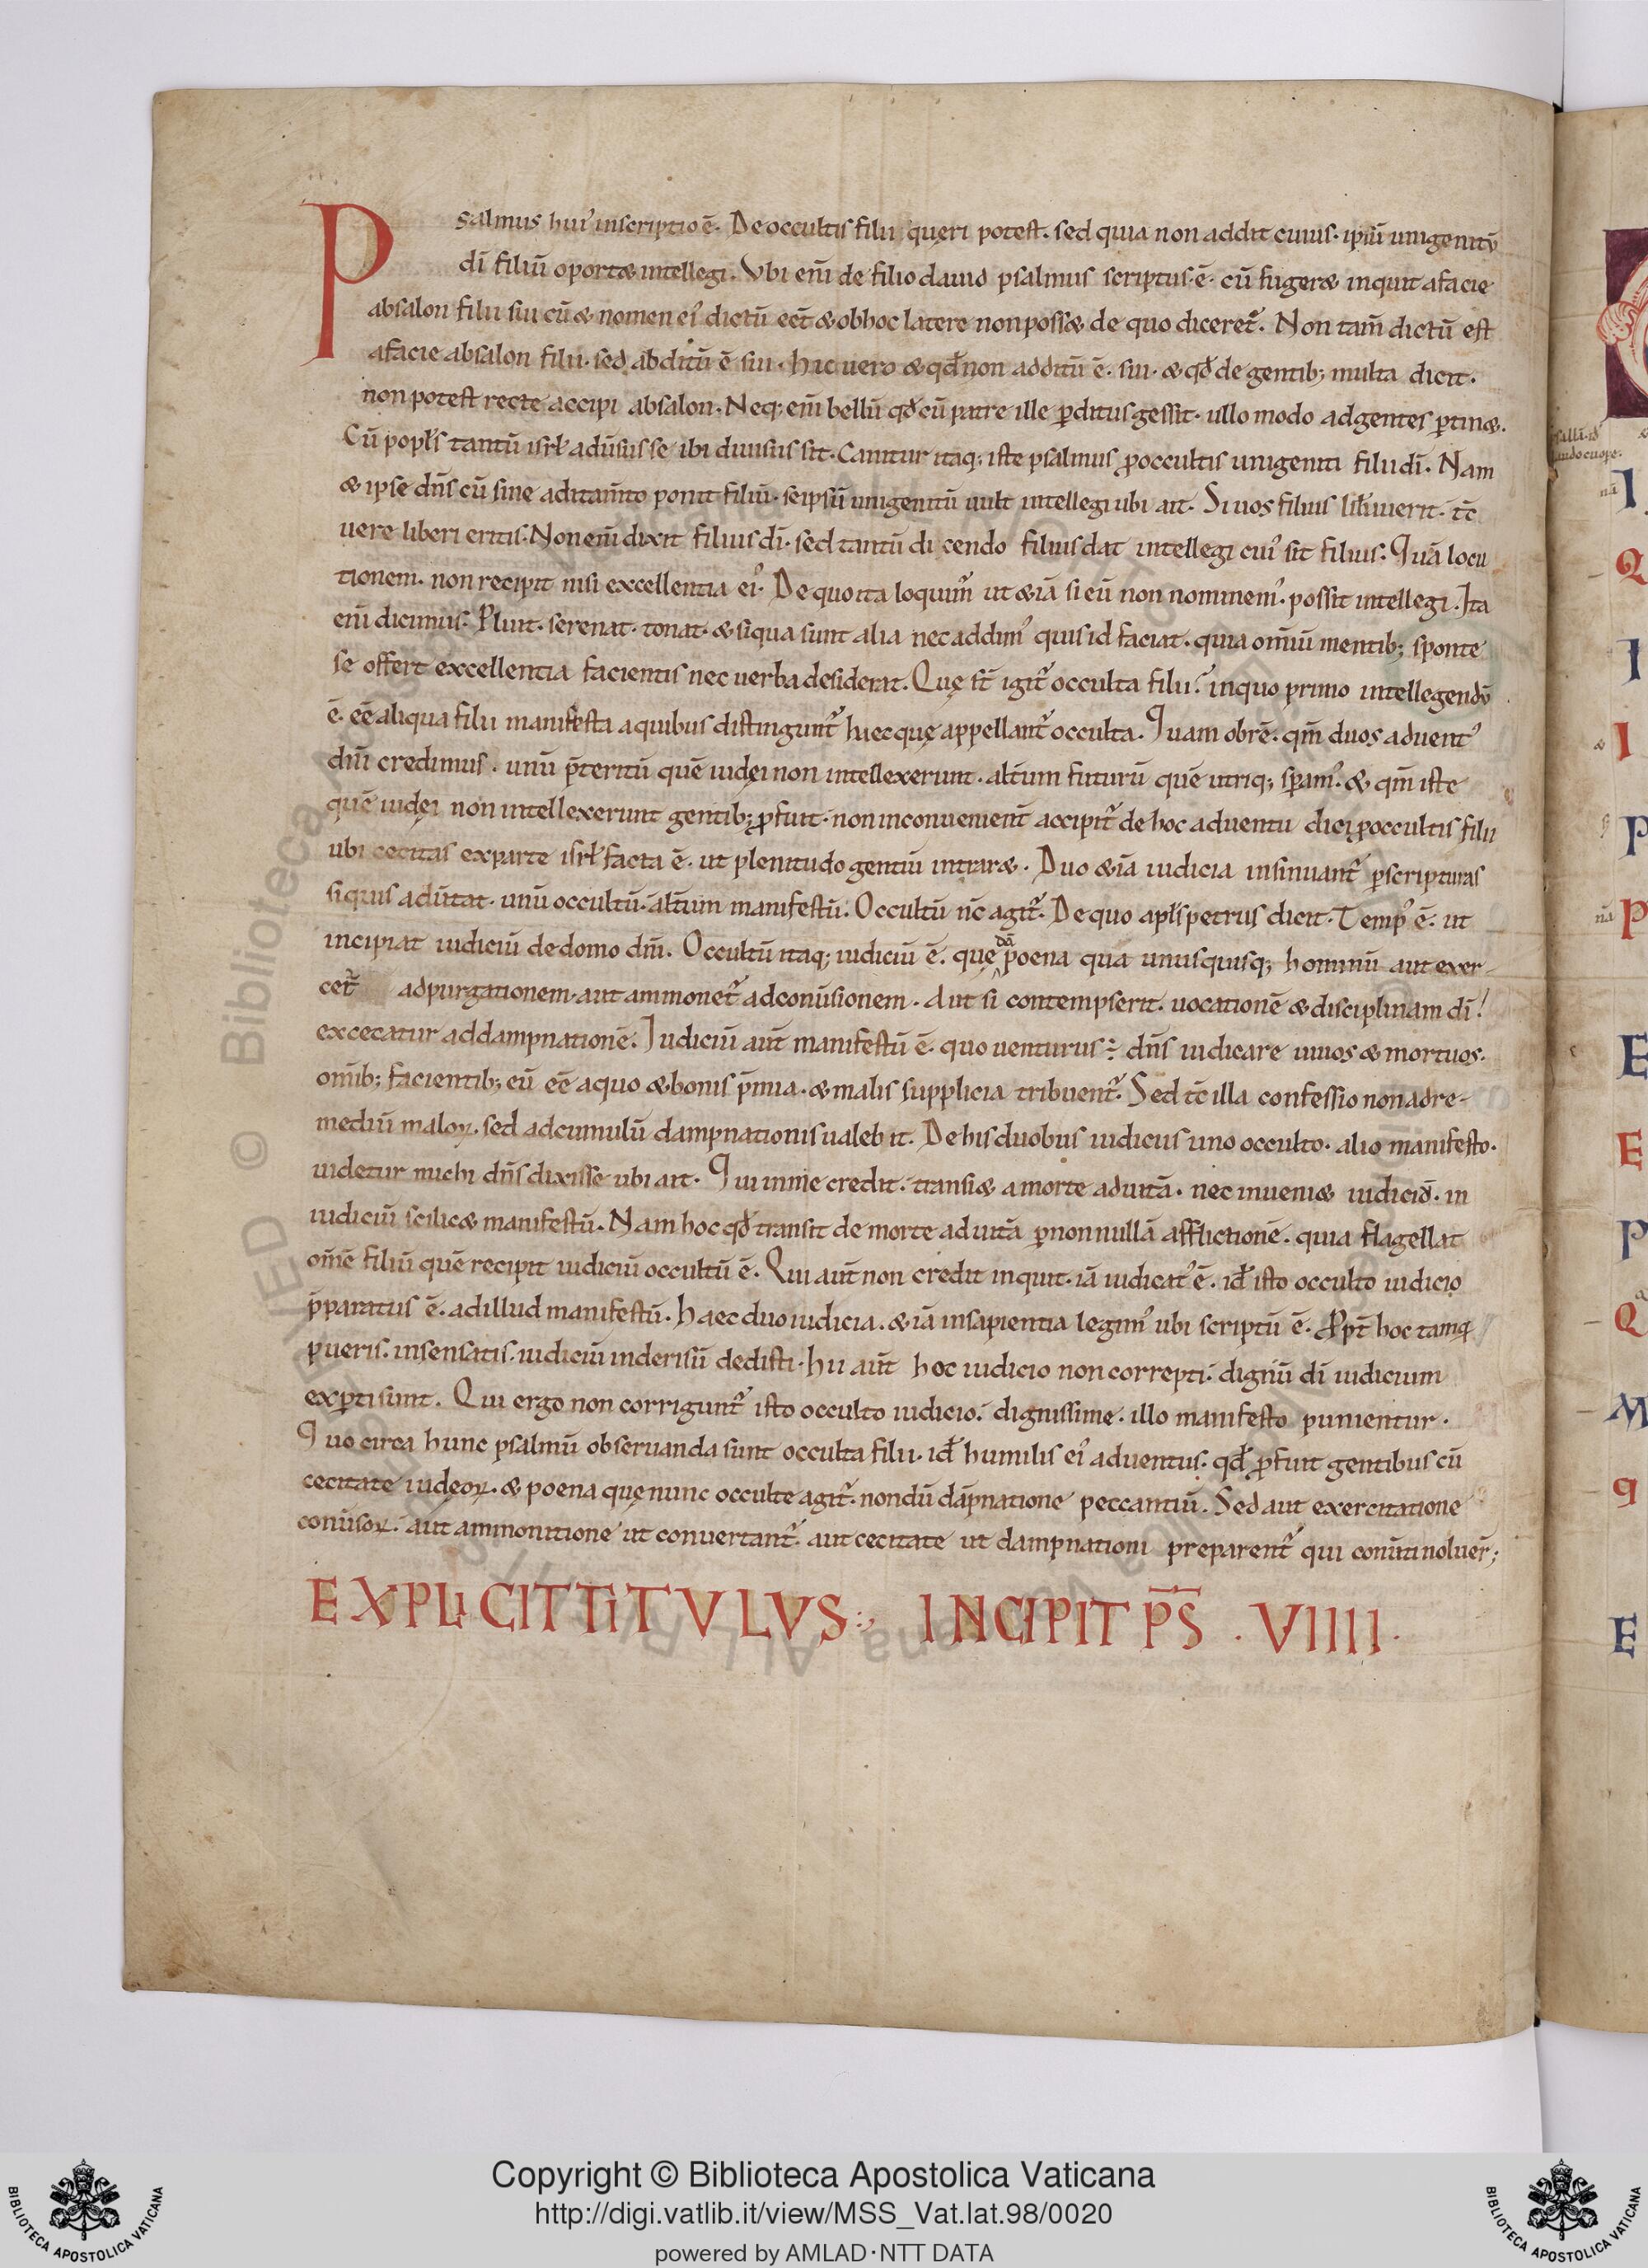 Psalmus hui᾽ inscriptio ē. De occultis filii queri potest. sed quia non addit cuius. ipsiū unigenitū
dī filiū oport& intellegi. Vbi eni̅ de filio dauid psalmus scriptus. ē. cū fuger& inquit a facie
absalon filii sui cū & nomen ei᾽ dictū eēt & ob hoc latere non poss& de quo diceret᷑. Non tam̅ dictū est
a facie absalon filii. sed abditū ē sui. hic uero & qđ non additū ē. sui. & qđ de gentib; multa dicit.
non potest recte accipi absalon. Neq; eni̅ bellū qđ cū patre ille p̱ditus gessit. ullo modo ad gentes p̱tin&.
Cū popl̅s tantū isrł adūsus se ibi diuisus sit. Canitur itaq; iste psalmus ꝓ occultis unigeniti filii dī. Nam
& ipse dn̅s cū sine aditam̅to ponit filiū. se ipsū unigenitū uult intellegi ubi ait. Si uos filius lib̅uuerit. tc̅
uere liberi eritis. Non eni̅ dixit filius dī. sed tantū di cendo filius dat intellegi cui᾽ sit filius. Quā locu
tionem. non recipit nisi excellentia ei᾽. De quo ita loquim᾽ ut &iā si eū non nominem᾽. possit intellegi. Ita
eni̅ dicimus. Pluit. serenat. tonat. & siqua sunt alia nec addim᾽ quis id faciat. quia om̅iū mentib; sponte
se offert excellentia facientis nec uerba desiderat. Quę st̅ igit᷑ occulta filii? in quo primo intellegendū
ē. eē aliqua filii manifesta a quibus distingunt᷑ haec quę appellant᷑ occulta. Quam ob rē. qm̅ duos aduent᾽
dni̅ credimus. unū p̄teritū quē iudęi non intellexerunt. alt̅um futurū quē utriq; sp̱am᾽. & qm̅ iste
quē iudęi non intellexerunt gentib; ꝓfuit. non inconuenient̅ accipit᷑ de hoc aduentu dici ꝓ occultis filii
ubi cecitas ex parte isrł facta ē. ut plenitudo gentiū intrar&. Duo &iā iudicia insinuant᷑ p̱ scripturas
siquis adūtat. unū occultū. alt̅um manifestū. Occultū nc̅ agit᷑. De quo apl̅s petrus dicit. Temp᾽ ē. ut
dā
incipiat iudiciū de domo dni̅. Occultū itaq; iudiciū ē. quę poena qua unusquisq; hominū aut exer-
cet᷑ ad purgationem. aut ammonet᷑ ad conūsionem. Aut si contempserit. uocationē & disciplinam dī!
excecatur ad dampnationē. Iudiciū aut̅ manifestū ē. quo uenturus ÷ dn̅s iudicare uiuos & mortuos.
om̅ib; facientib; eū eē a quo & bonis p̄mia. & malis supplicia tribuent᷑. Sed tc̅ illa confessio non ad re-
mediū maloꝝ. sed ad cumulū dampnationis ualeb it. De his duobus iudiciis uno occulto. alio manifesto.
uidetur michi dn̅s dixisse ubi ait. Qui in me credit. transi& a morte ad uitā. nec inueni& iudiciō. in
iudiciū scilic& manifestū. Nam hoc qđ transit de morte ad uitā p̱ non nullā afflictionē. quia flagellat
om̅ē filiū quē recipit iudiciū occultū ē. Qui aut̅ non credit inquit. iā iudicat᾽ ē. idˈ isto occulto iudicio
p̄paratus ē. ad illud manifestū. Haec duo iudicia. & iā in sapientia legim᾽ ubi scriptū ē. Ꝓpt̅ hoc tamq̅
pueris. insensatis. iudiciū in derisū dedisti. hii aut̅ hoc iudicio non correpti. dignū dī iudicium
exp̱ti sunt. Qui ergo non corrigunt᷑ isto occulto iudicio. dignissime. illo manifesto punientur.
Quo circa hunc psalmū obseruanda sunt occulta filii. idˈ humilis ei᾽ aduentus. qđ ꝓfuit gentibus cū
cecitate iudęoꝝ. & poena quę nunc occulte agit᷑. nondū dāpnatione peccantiū. Sed aut exercitatione
conūsoꝝ. aut ammonitione ut conuertant᷑. aut cecitate ut dampnationi preparent᷑ qui conūti noluer̅;
EXPLICIT TITVLVS: INCIPIT P̅S̅ . VIIII.
Copyright © Biblioteca Apostolica Vaticana
http://digi.vatlib.it/view/MSS_Vat.lat.98/0020
powered by AMLAD·NTT DATA
BIBLIOTECA APOSTOLICA VATICANA
BIBLIOTECA APOSTOLICA VATICANA